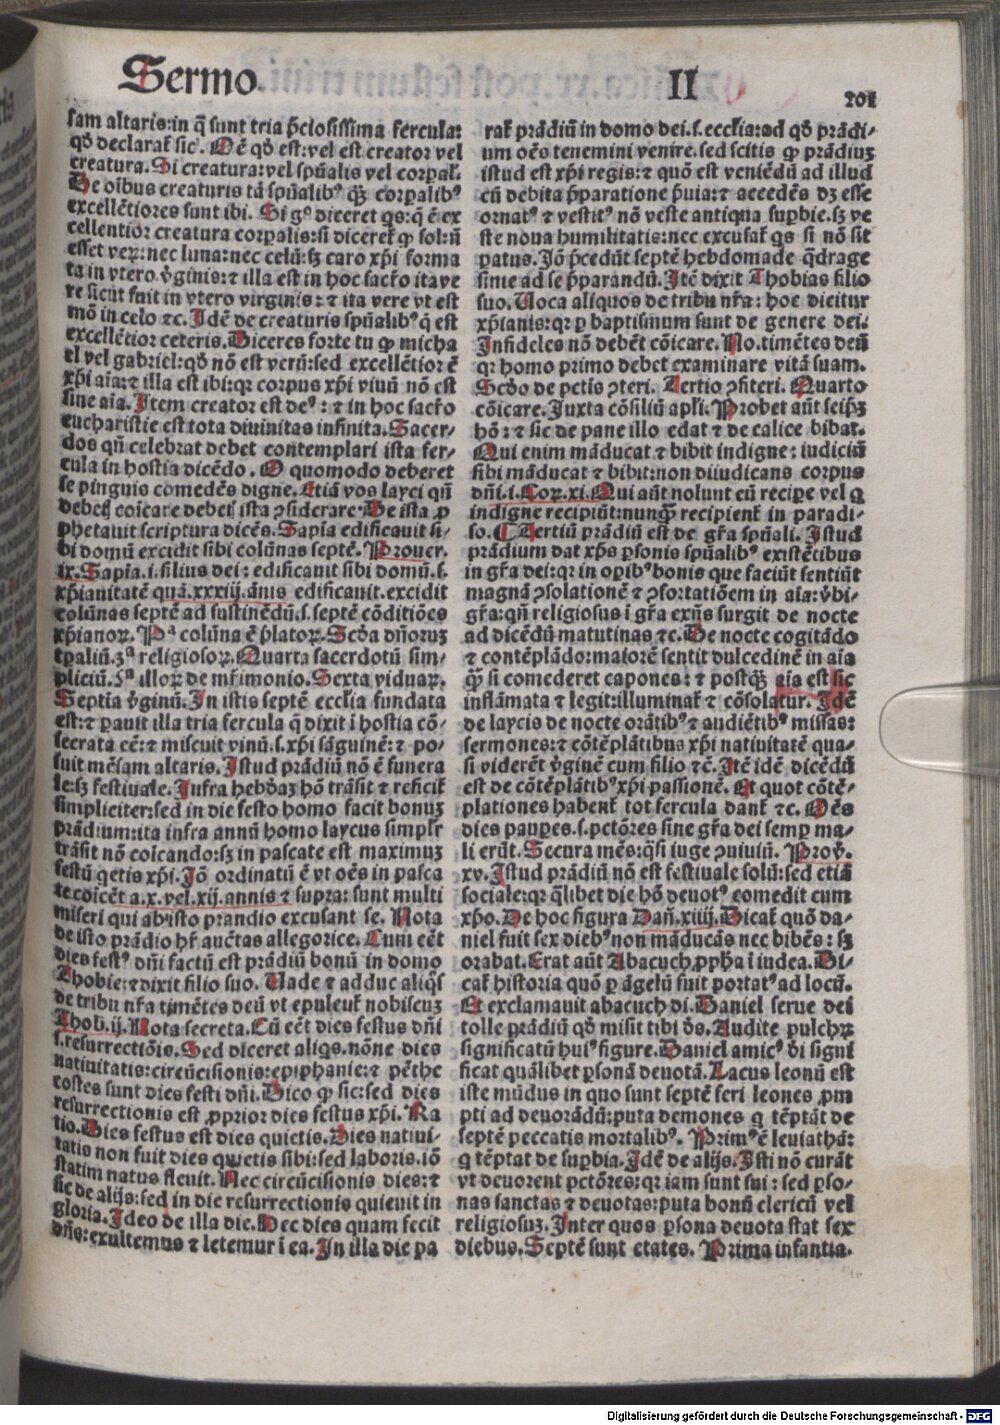 Sermo II 201
sam altaris:in q̄ sunt tria p̄ciosissima fercula:
qd̄ declarat̄ sic. Oē̄ qd̄ est:vel est creator vel
creatura.Si creatura:vel spūalis vel corpał.
De oībus creaturis tā spūalib⁹ q̄ꝫ corpalib⁹
excellētiores sunt ibi. Si g⁰ diceret qs:q̄ ē ex
cellentior creatura corpalis:si diceret̄ ꝙ sol:ñ
esset veꝝ:nec luna:nec celū:sꝫ caro xp̄i forma
ta in vtero v̄ginis:⁊ illa est in hoc sacr̄o ita ve
re sicut fuit in vtero virginis:⁊ ita vere vt est
mō in celo ⁊c.Idē de creaturis spūalib⁹ q̄ est
excellētior ceteris.Diceres forte tu ꝙ micha
el vel gabriel:qd̄ nō est verū:sed excellētior ē
xp̄i aīa:⁊ illa est ibi:qꝛ corpus xp̄i viuū nō est
sine aīa.Item creator est de⁹:⁊ in hoc sacr̄o
eucharistie est tota diuinitas infinita.Sacer⸗
dos qñ celebrat debet contemplari ista fer⸗
cula in hostia dicēdo. O quomodo deberet
se pinguis comedēs digne.Etiā vos layci qñ
debetꝭ coīcare debetꝭ ista ꝯsiderare.De ista ꝓ
phetauit scriptura dicēs.Sapīa edificauit si⸗
bi domū excidit sibi colūnas septē. Prouer.
ix.Sapīa.i.filius dei:edificauit sibi domū.s.
xp̄ianitatē quā.xxxiij.ānis edificauit.excidit
colūnas septē ad sustinēdū.s.septē cōditiōes
xp̄ianoꝝ.Pᵃ colūna ē p̄latoꝝ.Scd̄a dñoruꝫ
tpaliū.3ᵃ religiosoꝝ.Quarta sacerdotū sim⸗
pliciū.5ᵃ illoꝝ de mr̄imonio.Sexta viduaꝝ.
Septīa v̄ginū.In istis septē ecclīa fundata
est:⁊ ꝑauit illa tria fercula q̄ dixit ī hostia cō⸗
secrata eē:⁊ miscuit vinū.s.xp̄i sāguinē:⁊ po⸗
suit mēsam altaris.Istud prādiū nō ē funera
le:sꝫ festiuale.Infra hebd̄aꝫ hō trāsit ⁊ reficit̄
simpliciter:sed in die festo homo facit bonuꝫ
prādium:ita infra annū homo laycus simplr̄
trāsit nō coīcando:sꝫ in pascate est maximuꝫ
festū qetis xp̄i.Iō ordinatū ē vt oēs in pasca
te coīcēt a.x.vel.xij.annis ⁊ supra:sunt multi
miseri qui ab isto prandio excusant se. Nota
de isto prādio hr̄ auctas allegorice. Cum eēt
dies fest⁹ dñi factū est prādiū bonū in domo
Thobie:⁊ dixit filio suo. Uade ⁊ adduc aliq̄s
de tribu nr̄a timētes deū vt epulent̄ nobiscuꝫ
Thob.ij.Nota secreta.Cū eēt dies festus dñi
s.resurrectiōis.Sed diceret aliqs.nōne dies
natiuitatis:circūcisionis:epiphanie:⁊ pēthe
costes sunt dies festi dñi.Dico ꝙ sic:sed dies
resurrectionis est ꝓprior dies festus xp̄i. Ra
tio.Dies festus est dies quietis.Dies natiui⸗
tatis non fuit dies quietis sibi:sed laboris.iō
statim natus fleuit. Nec circūcisionis dies:⁊
sic de alijs:sed in die resurrectionis quieuit in
gloria.Ideo de illa die.Hec dies quam fecit
dñs:exultemus ⁊ letemur ī ea.In illa die pa
rat̄ prādiū in domo dei.s.ecclīa:ad qd̄ prādi⸗
um oēs tenemini venire.sed scitis ꝙ prādiuꝫ
istud est xp̄i regis:⁊ quō est veniēdū ad illud
cū debita p̄paratione p̄uia:⁊ accedēs dꝫ esse
ornat⁹ ⁊ vestit⁹ nō veste antiqua supbie.sꝫ ve
ste noua humilitatis:nec excusat̄ qs si nō sit
patus.Iō p̄cedūt septē hebdomade q̄drage
sime ad se p̄parandū.Itē dixit Thobias filio
suo.Uoca aliquos de tribu nr̄a:hoc dicitur
xp̄ianis:qꝛ ꝑ baptismum sunt de genere dei.
Infideles nō debēt cōicare.No.timētes deū
qꝛ homo primo debet examinare vitā suam.
Scd̄o de petīs ꝯteri. Tertio ꝯfiteri. Quarto
cōicare.Iuxta cōsiliū apl̄i.Probet aūt seip̄ꝫ
hō:⁊ sic de pane illo edat ⁊ de calice bibat.
Qui enim māducat ⁊ bibit indigne:iudiciū
sibi māducat ⁊ bibit:non diiudicans corpus
dñi.i.Coꝝ.xi.Qui aūt nolunt eū recipe vel q
indigne recipiūt:nunq̄ꝫ recipient̄ in paradi⸗
so.¶Tertiū prādiū est de gr̄a spūali. Istud
prādium dat xp̄s ꝑsonis spūalib⁹ existētibus
in gr̄a dei:qꝛ in opib⁹ bonis que faciūt sentiūt
magnā ꝯsolationē ⁊ ꝯfortatiōem in aīa:v̄bi⸗
gr̄a:qñ religiosus ī gr̄a exñs surgit de nocte
ad dicēdū matutinas ⁊c.De nocte cogitādo
⁊ contēplādo:maiorē sentit dulcedinē in aīa
q̄ꝫ si comederet capones:⁊ postq̄ꝫ aīa est sic
inflāmata ⁊ legit:illuminat̄ ⁊ cōsolatur. Idē
de laycis de nocte orātib⁹ ⁊ audiētib⁹ missas:
sermones:⁊ cōtēplātibus xp̄i natiuitatē qua⸗
si viderēt v̄ginē cum filio ⁊c. Itē idē dicēdū
est de cōtēplātib⁹ xp̄i passionē. Et quot cōtē⸗
plationes habent̄ tot fercula dant̄ ⁊c. Oēs
dies paupes.s.pctōres sine gr̄a dei semp ma⸗
li erūt.Secura mēs:q̄si iuge ꝯuiuiū. Prov̄.
xv.Istud prādiū nō est festiuale solū:sed etiā
sociale:qꝛ q̄libet die hō deuot⁹ comedit cum
xp̄o.De hoc figura Dañ.xiiij.Dicat̄ quō da⸗
niel fuit sex dieb⁹ non māducās nec bibēs:sꝫ
orabat.Erat aūt Abacuch ꝓpha ī iudea.Di⸗
cat̄ historia quō ꝑ āgelū fuit portat⁹ ad locū.
Et exclamauit abacuch di.Daniel serue dei
tolle prādiū qd̄ misit tibi ds̄.Audite pulchꝝ
significatū hui⁹ figure.Daniel amic⁹ di signi
ficat quālibet ꝑsonā deuotā.Lacus leonū est
iste mūdus in quo sunt septē feri leones ꝓm
pti ad deuorādū:puta demones q tēptāt de
septē peccatis mortalib⁹. Prim⁹ ē leuiathā:
q tēptat de supbia.Idē de alijs.Isti nō curāt
vt deuorent pctōres:qꝛ iam sunt sui:sed ꝑso⸗
nas sanctas ⁊ deuotas:puta bonū clericū vel
religiosuꝫ.Inter quos ꝑsona deuota stat sex
diebus.Septē sunt etates. Prima infantia.
Digitalisierung gefördert durch die Deutsche Forschungsgemeinschaft - DFG